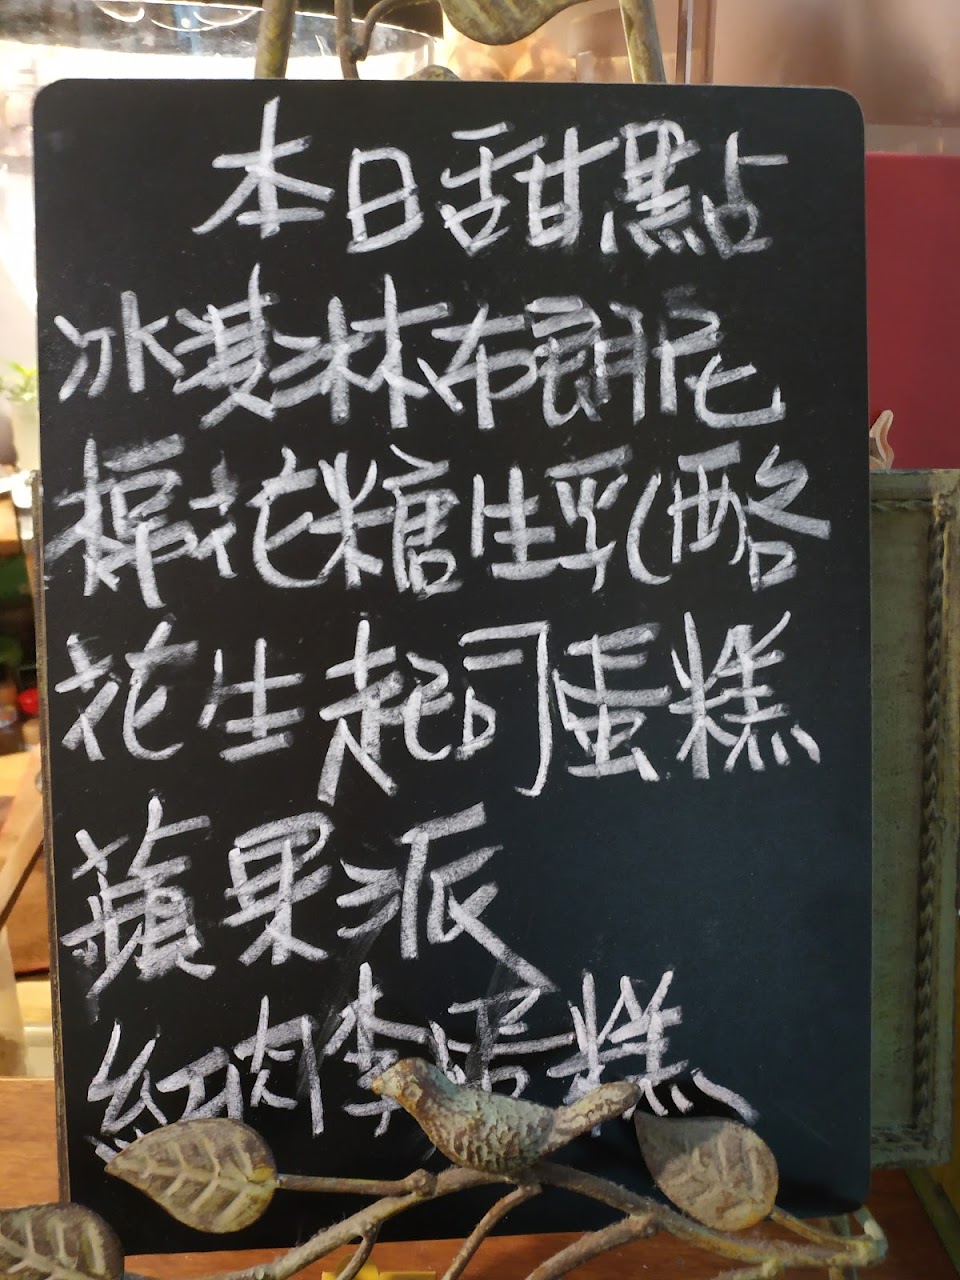 本日甜點
冰淇淋布朗尼
棉花糖生乳酪
花生起司蛋糕
蘋果派
紅肉李蛋糕